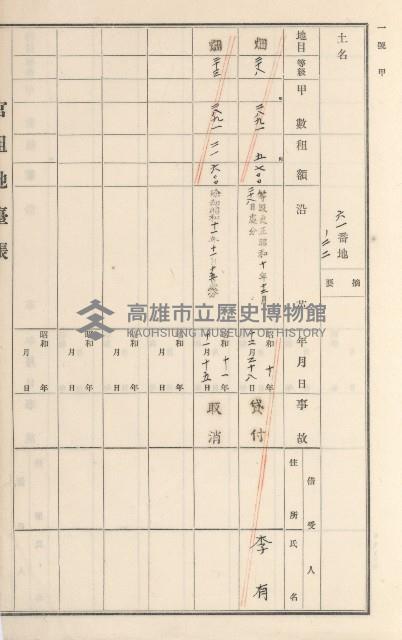 一號 甲
土名
六一番地
ノ二二
摘要
地目
等級
甲數
租額
沿革
年月日
事故
借受人
住所
氏名
畑
二八
二八九一
五七〇〇
等級更正昭和十年十二月
二十八日處分
昭和十年
十二月二十八日
貸付
李有
畑
二三
二八九一
二一六〇〇
昭和十一年
十一月十五日
取消
昭和 年
月 日
昭和 年
月 日
昭和 年
月 日
昭和 年
月 日
官租地臺帳
高雄市立歷史博物館
KAOHSIUNG MUSEUM OF HISTORY